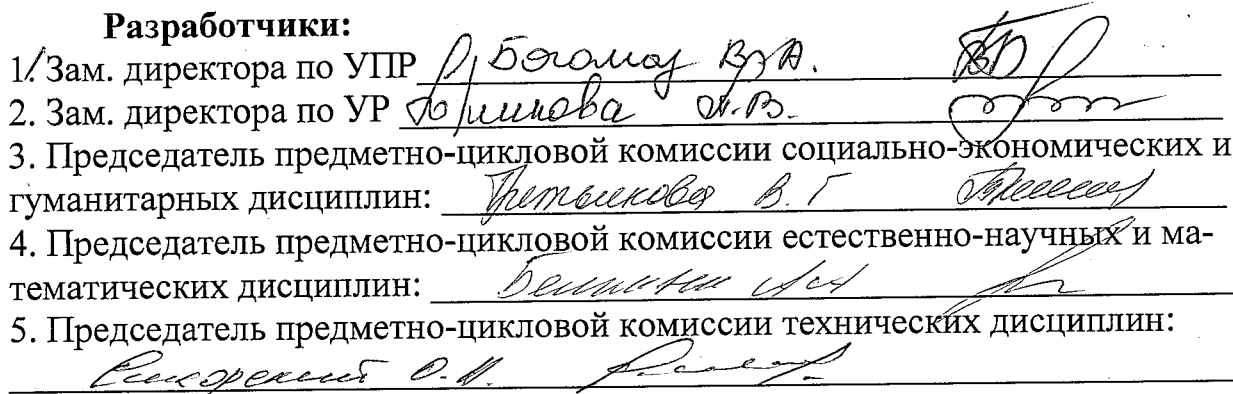 Разработчики:
1. Зам. директора по УПР Богомаз В.А.
2. Зам. директора по УР
3. Председатель предметно-цикловой комиссии социально-экономических и
гуманитарных дисциплин: В. Г
4. Председатель предметно-цикловой комиссии естественно-научных и ма-
тематических дисциплин:
5. Председатель предметно-цикловой комиссии технических дисциплин:
Сикорский О.И.